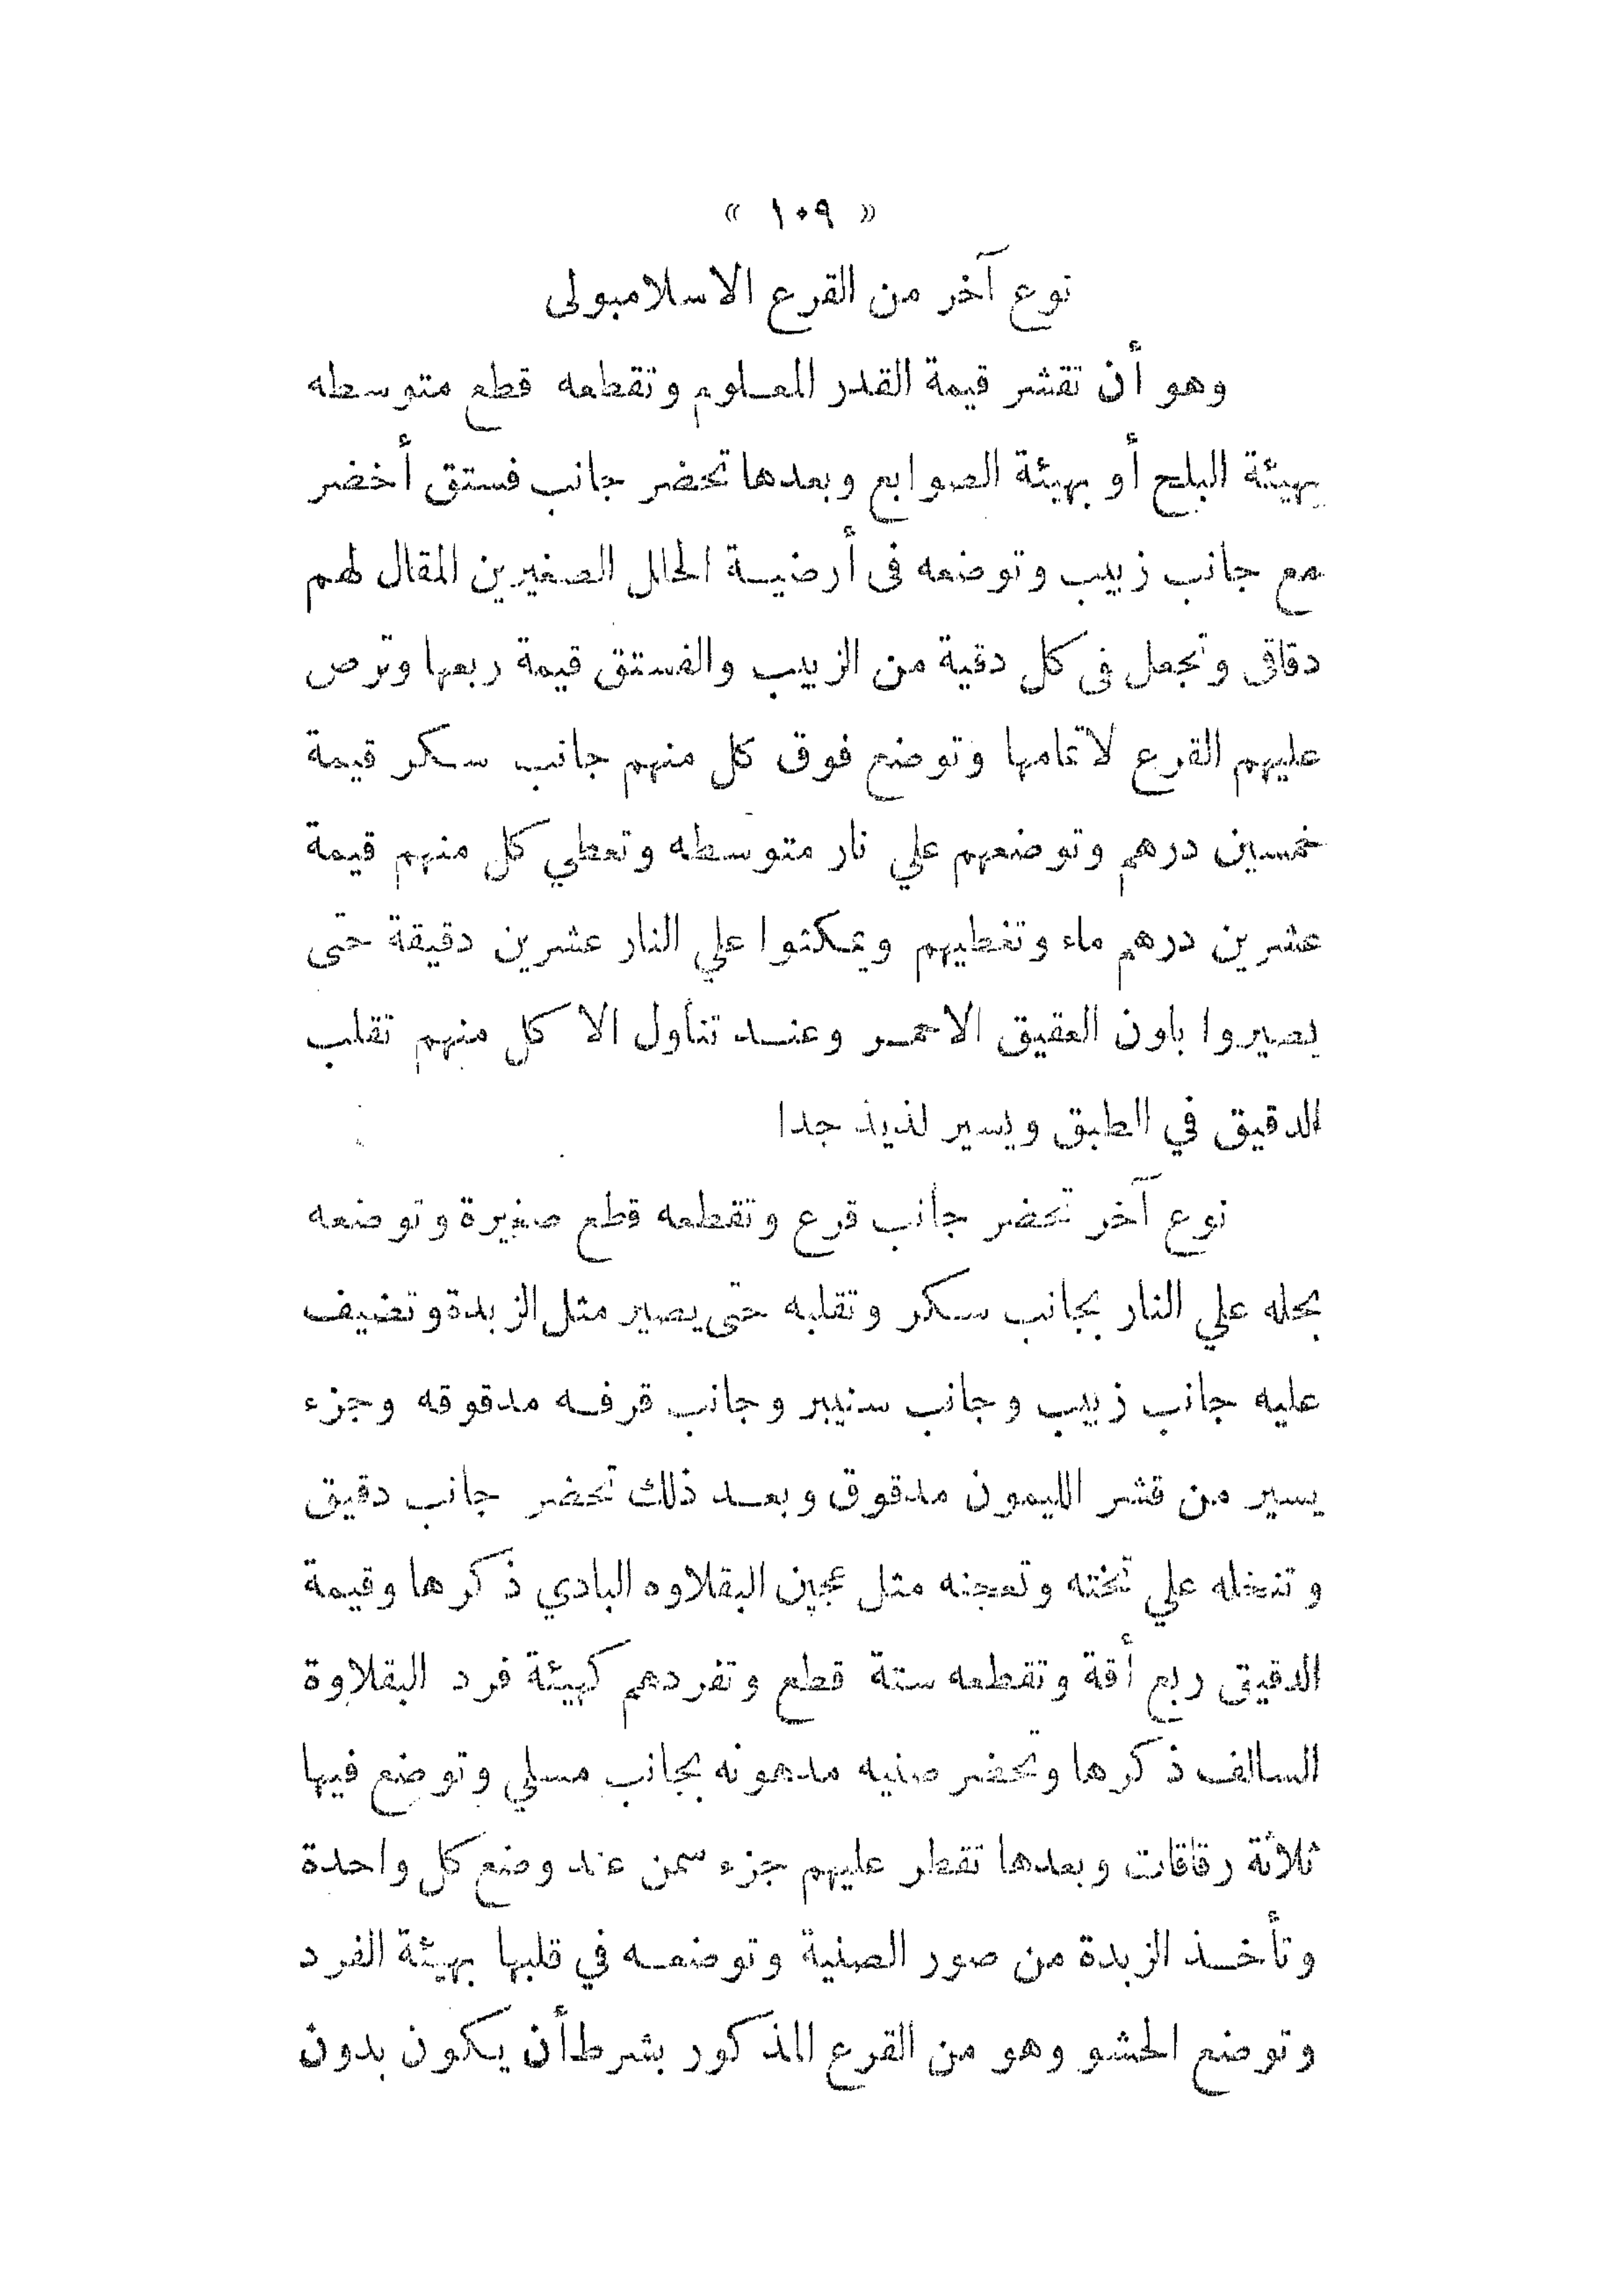 « ١٠٩ »
نوع آخر من القرع الاسلامبولى
وهو أن تقشر قيمة القدر المعلوم وتقطعه قطع متوسطه
بهيئة البلح أو بهيئة الصوابع وبعدها تحضر جانب فستق أخضر
مع جانب زبيب وتوضعه فى أرضية الحلل الصغيرين المقال لهم
دقاقى وتجعل فى كل دقية من الزبيب والفستق قيمة ربعها وترص
عليهم القرع لاتمامها وتوضع فوق كل منهم جانب سكر قيمة
خمسين درهم وتوضعهم علي نار متوسطه وتعطي كل منهم قيمة
عشرين درهم ماء وتغطيهم ويمكثوا علي النار عشرين دقيقة حتى
يصيروا باون العقيق الاحمر وعند تناول الا كل منهم تقلب
الدقيق في الطبق ويسير لذيذ جدا
نوع آخر تحضر جانب قرع وتقطعه قطع صغيرة وتوضعه
بحله علي النار بجانب سكر وتقلبه حتى يصير مثل الزبدة وتضيف
عليه جانب زبيب وجانب سنيبر وجانب قرفه مدقوقه وجزء
يسير من قشر الليمون مدقوق وبعد ذلك تحضر جانب دقيق
وتنخله علي تخته وتعجنه مثل عجين البقلاوه البادي ذكرها وقيمة
الدقيق ربع أقة وتقطعه ستة قطع وتفردهم كهيئة فرد البقلاوة
السالف ذكرها وتحضر صنيه مدهونه بجانب مسلي وتوضع فيها
ثلاثة رقاقات وبعدها تقطر عليهم جزء سمن عند وضع كل واحدة
وتأخذ الزبدة من صور الصنية وتوضعه في قلبها بهيئة الفرد
وتوضع الحشو وهو من القرع المذكور بشرط أن يكون بدون